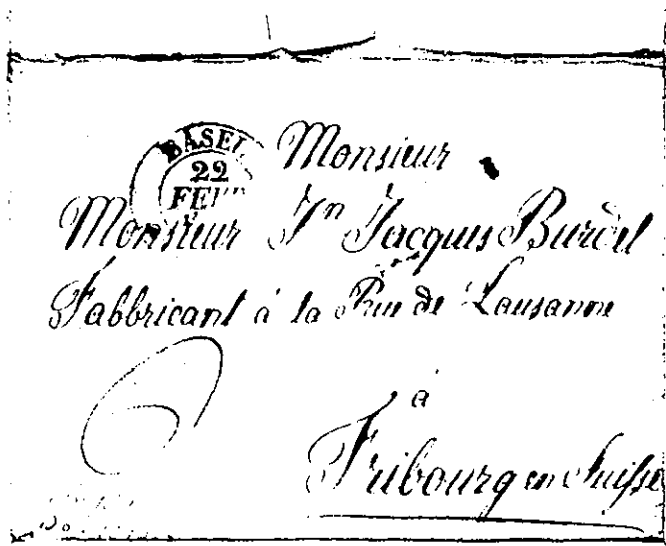 BASEL
22
Monsieur
Monsieur Jn Jacques Burdel
Fabbricant à la Rue de Lausanne
à
Fribourg en Suisse